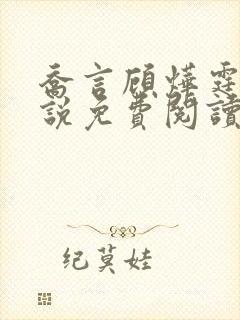 喬言顧燁霆
說免費閱讀
纪莫娃